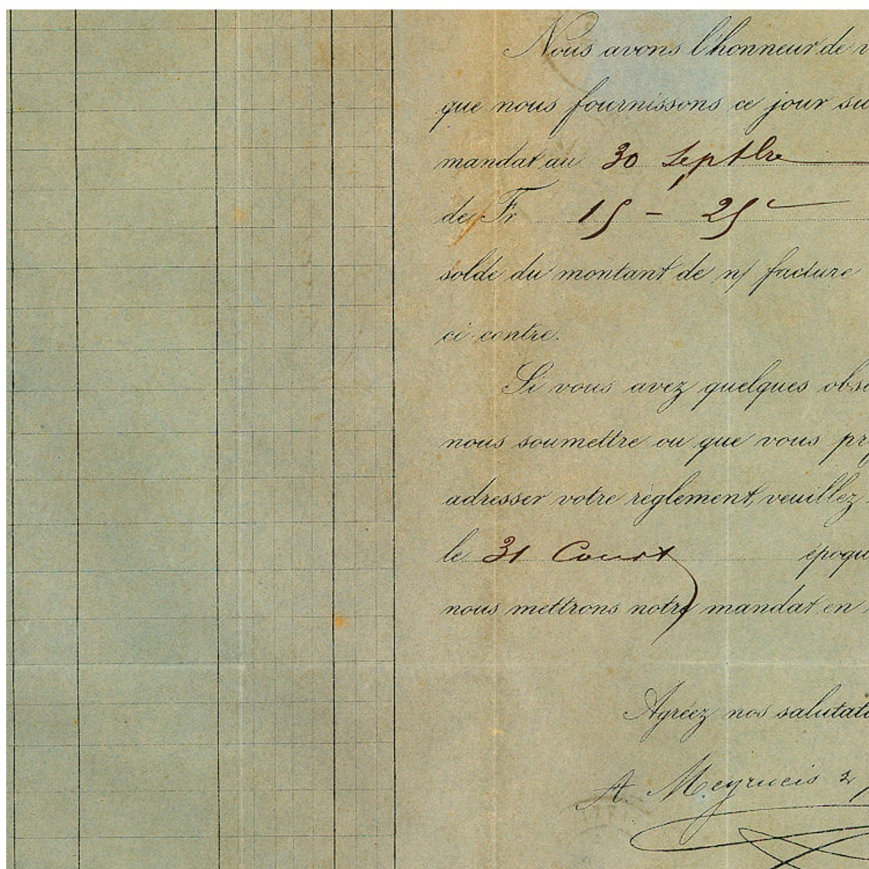 Nous avons l'honneur de v
que nous fournissons ce jour su
mandat au 30 Septbre
de Fr 15 - 25c
solde du montant de n/ facture
ci contre.
Si vous avez quelques obse
nous soumettre ou que vous pré
adresser votre règlement, veuillez
le 31 Court époqu
nous mettrons notre mandat en
Agréez nos salutati
A. Meyrueis &